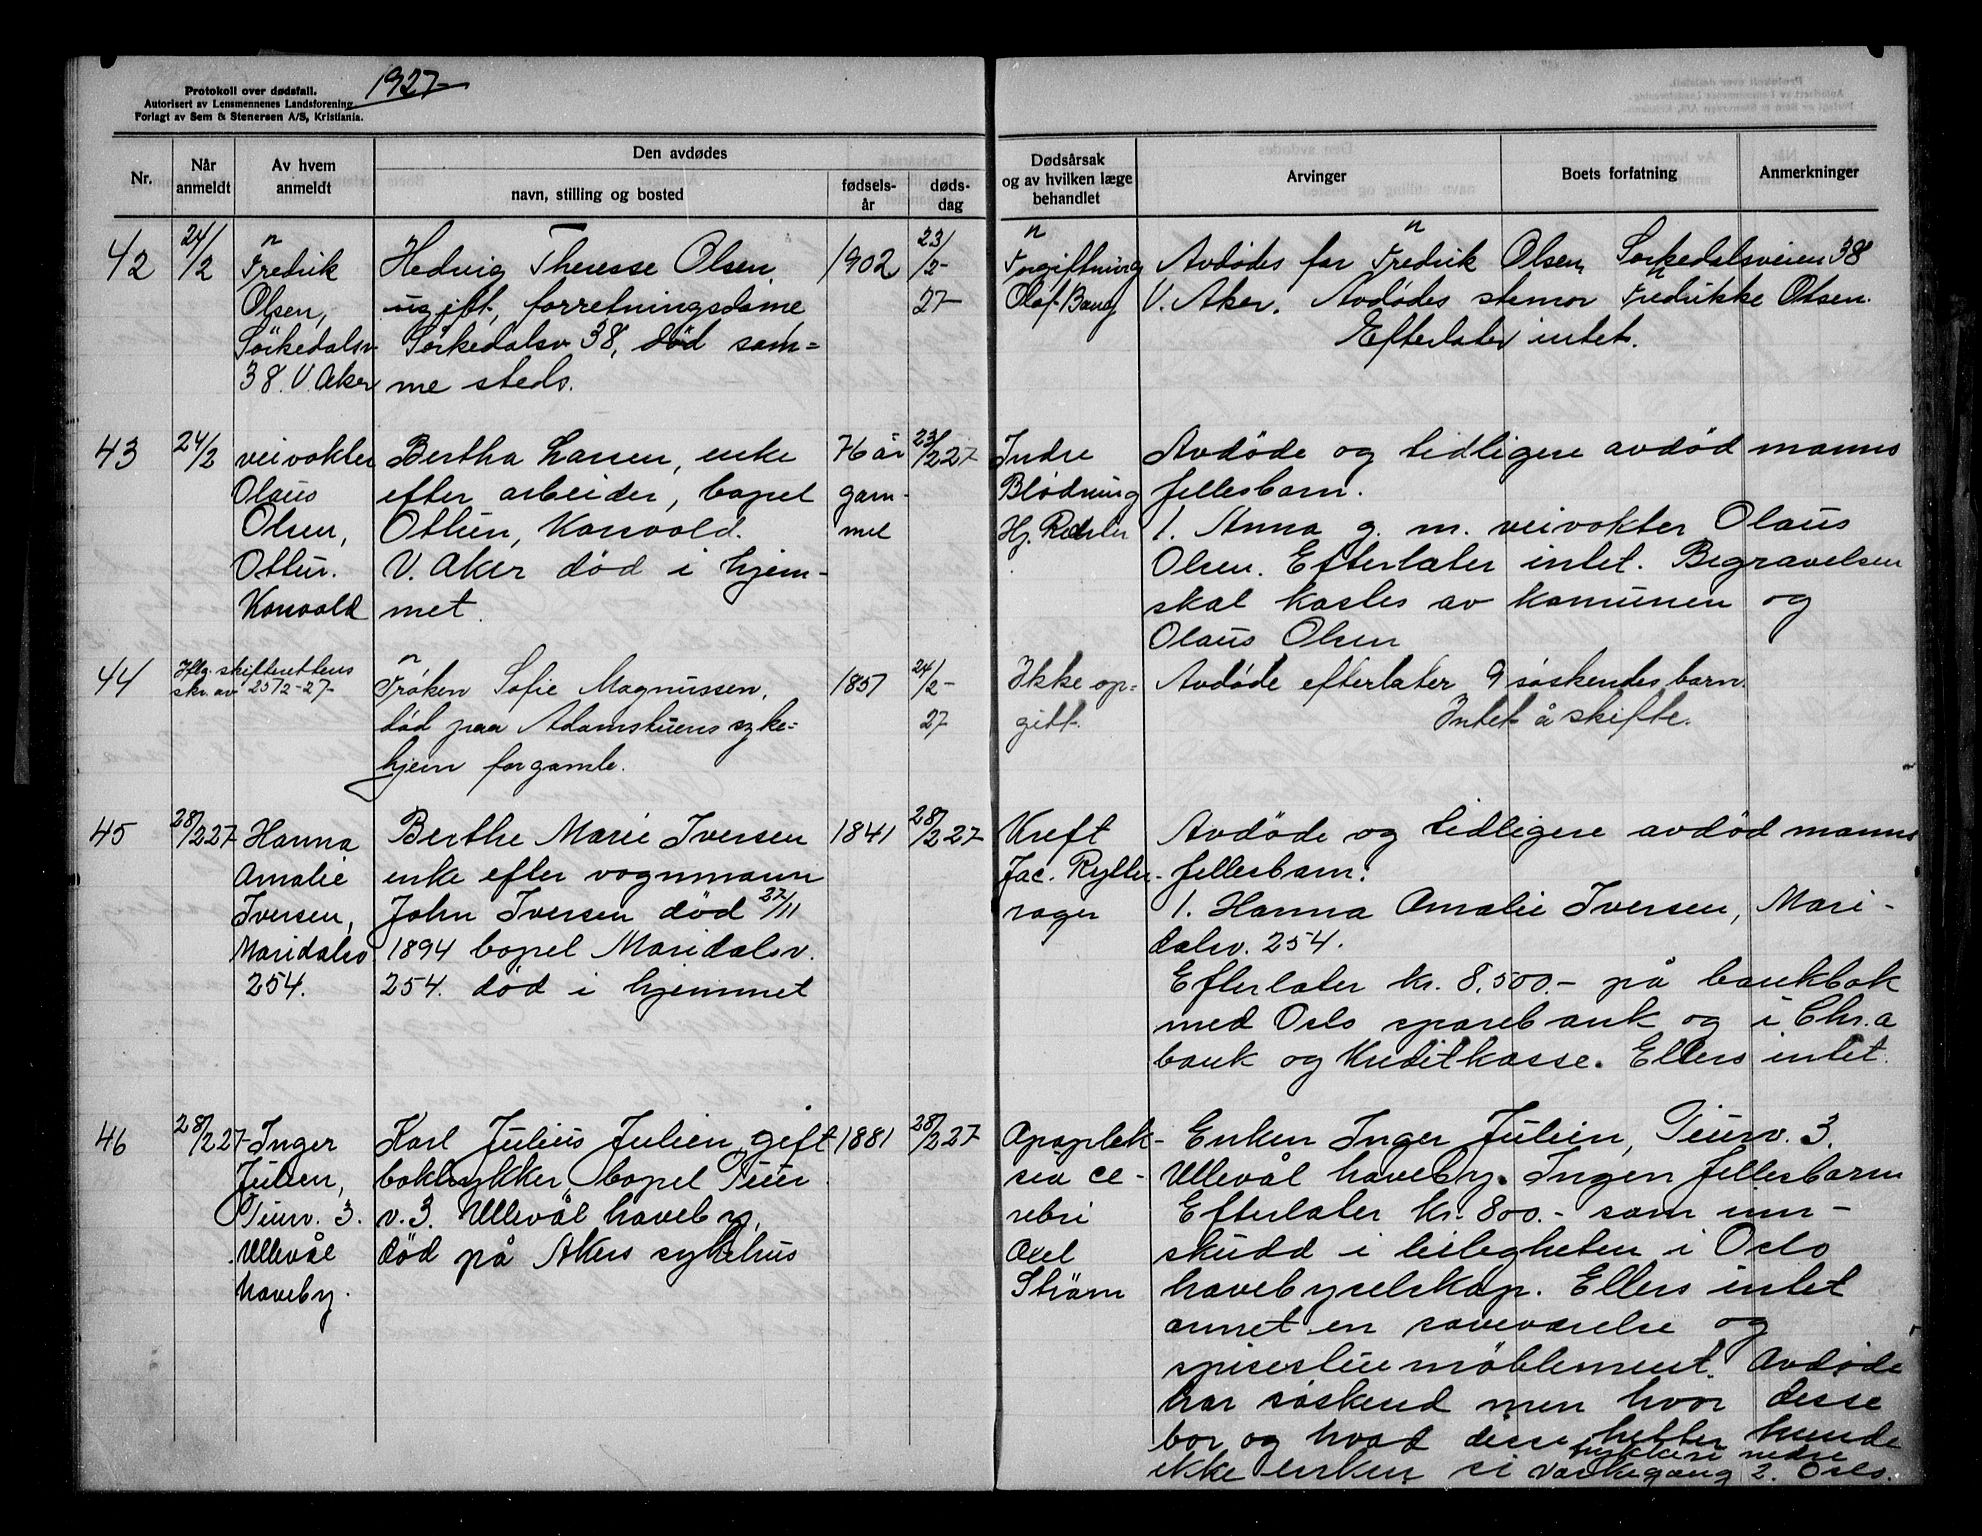 1927
Protokoll over dødsfall.
Autorisert av Lensmennenes Landsforening
Forlagt av Sem & Stenersen A/S, Kristiania.
Nr.
Når anmeldt
Av hvem anmeldt
Den avdødes
navn, stilling og bosted
fødsels-år
døds-dag
Dødsårsak og av hvilken læge behandlet
Arvinger
Boets forfatning
Anmerkninger
42
24/2
Fredrik
Olsen,
Sörkedalsv
38. V. Aker
Hedvig Therese Olsen
ugift, forretningsdame
Sörkedalsv 38, död sam=
me steds.
1902
23/2-
27-
Forgiftning
Olaf Bang
Avdödes far Fredrik Olsen, Sorkedalsveien 38
V. Aker. Avdödes stemor Fredrikke Olsen.
Efterlater intet.
43
24/2
veivokter
Olaus
Olsen,
Ottun.
Korsvold
Bertha Larsen, enke
efter arbeider, bopel
Ottun, Korsvold.
V. Aker död i hjem-
met.
76 år
gam-
mel
23/2 27-
Indre
Blödning
Hj.
Avdöde og tidligere avdöd manns
fellesbarn.
1. Anna g. m. veivokter Olaus
Olsen. Efterlater intet. Begravelsen
skal kostes av komunen og
Olaus Olsen
44
Iflg. skifterettens
skr. av 25/2-27-
Fröken Sofie Magnussen,
död paa Adamstuens syke=
hjem for gamle.
1857
24/2-
27
Ikke op=
gitt.
Avdöde efterlater 9 söskendesbarn.
Intet å skifte.
45
28/2 27-
Hanna
Amalie
Iversen,
Maridalsv
254.
Berthe Marie Iversen
enke efter vognmann
John Iversen död 22/11
1894 bopel Maridalsv.
254. död i hjemmet
1841
28/2 27-
Kreft
Jac. Rytter-
rager
Avdöde og tidligere avdöd manns
fellesbarn.
1. Hanna Amalie Iversen, Mari-
dalsv. 254.
Efterlater kr. 8,500.- på bankbok
med Oslo sparebank og i Chr.a
bank og Kreditkasse. Ellers intet.
46
28/2 27-
Inger
Julien,
Tiurv. 3.
Ullevål
haveby.
Karl Julius Julien, gift
boktrykker, bopel Tiur
v. 3. Ullevål haveby,
död på Akers sykehus
1881
28/2 27-
Apoplek-
sia ce-
rebri
Axel
Ström
Enken Inger Julien, Tiurv. 3.
Ullevål haveby. Ingen fellesbarn
Efterlater kr. 800.- som inn-
skudd i leiligheten i Oslo
havebyselskap. Ellers intet
annet en soveværelse og
spisestue möblement. Avdöde
har söskend men hvor desse
bor og hvad disse heter kunde
ikke enken si nedre
2. Oslo.